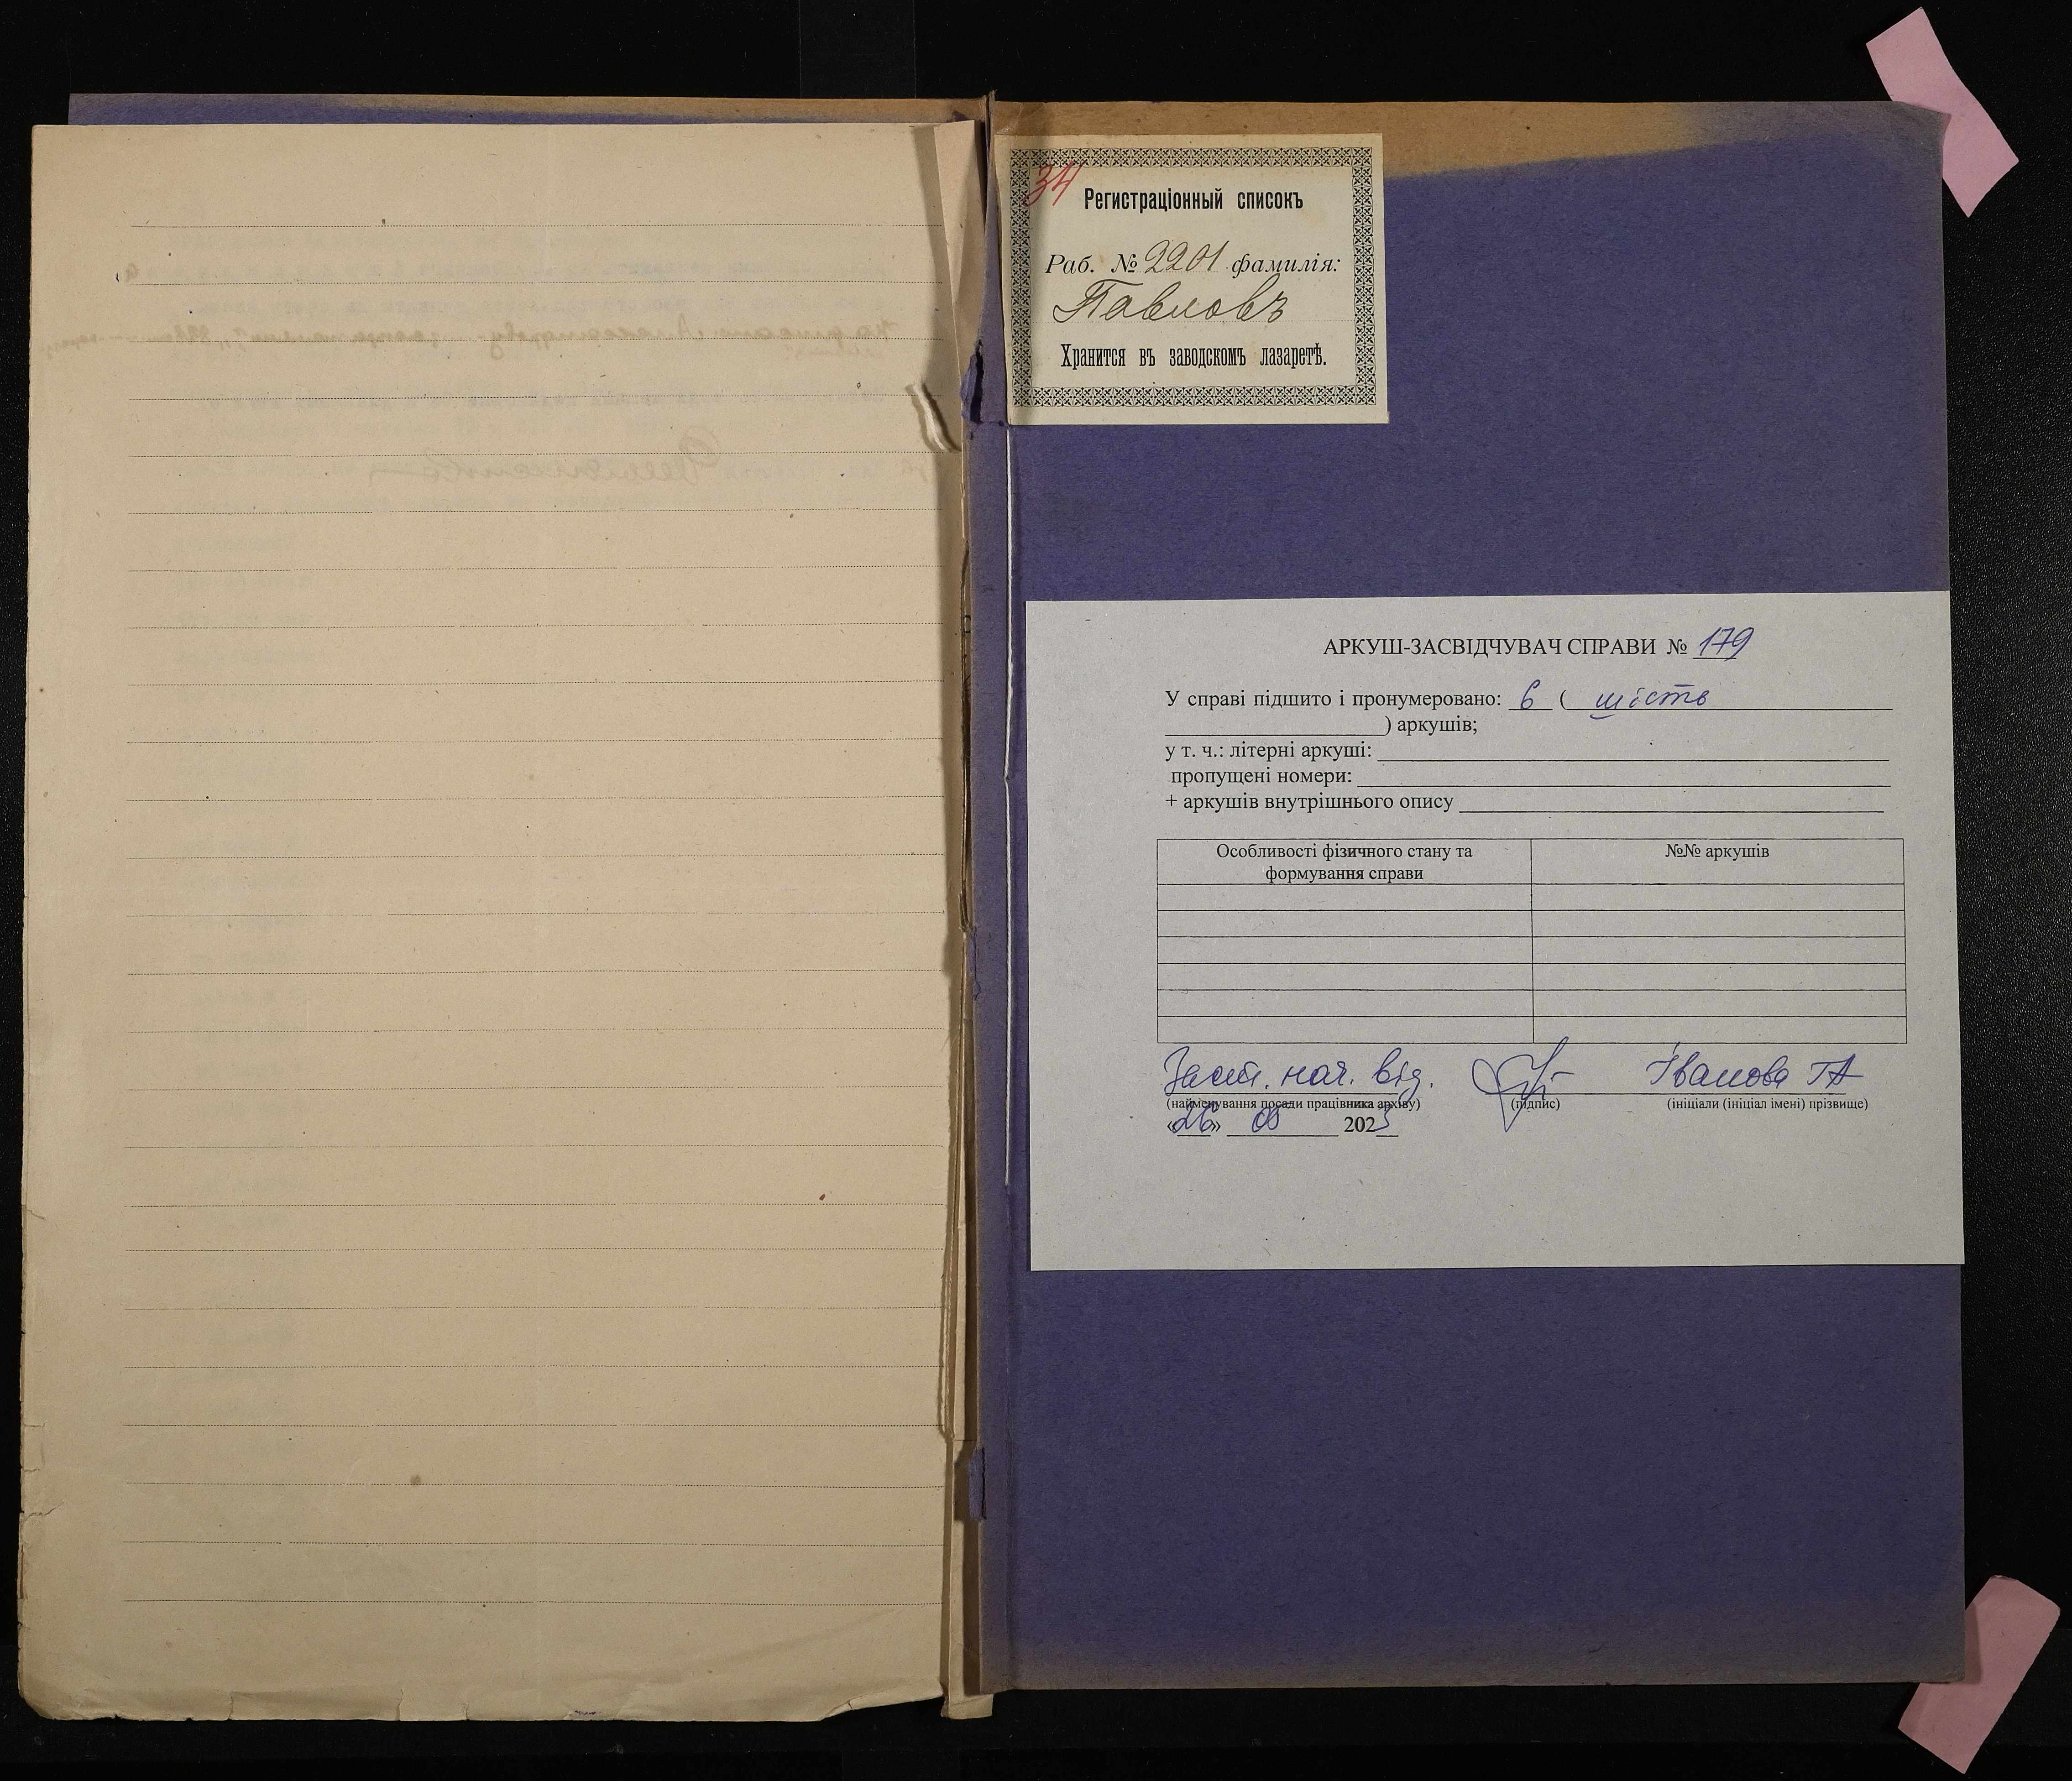 34
Регистраціонный списокъ
Раб. № 2201 фамилія:
Павловъ
Хранится въ заводскомъ лазаретѣ.
АРКУШ-ЗАСВІДЧУВАЧ СПРАВИ № 179
У справі підшито і пронумеровано: 6 ( шість
) аркушів;
у т. ч.: літерні аркуші:
пропущені номери:
+ аркушів внутрішнього опису
Особливості фізичного стану та
формування справи
№№ аркушів
Заст. нач. від. Іванова ТА
(найменування посади працівника архіву) (підпис) (ініціали (ініціал імені) прізвище)
«26» 05 2023